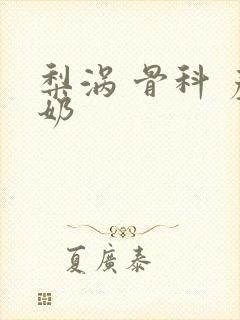 梨涡 骨科
奶
夏廣泰